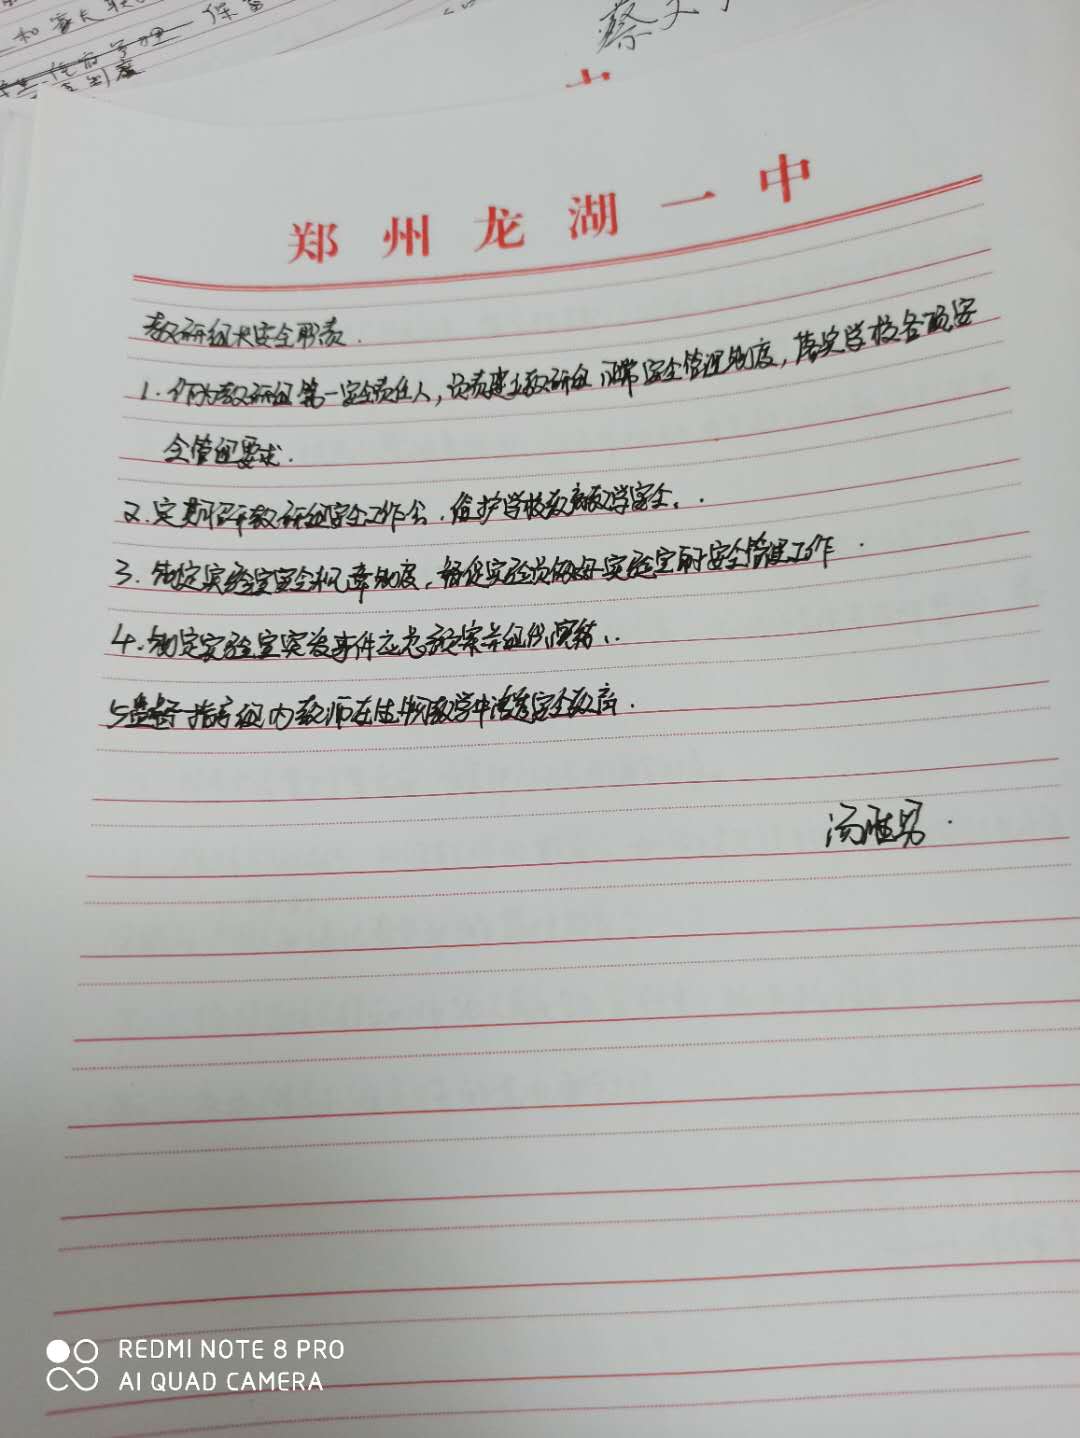 和家长联
保
制度
蔡文
郑州龙湖一中
教研组长安全职责.
1.作为教研组第一安全责任人,负责建立教研组日常安全管理制度,落实学校各项安
全管理要求.
2.定期召开教研组安全工作会,维护学校教育教学安全.
3.制定实验室安全规章制度,督促实验员做好实验室的安全管理工作.
4.制定实验室突发事件应急预案并组织演练.
5 指导组内教师在学科教学中渗透安全教育.
汤胜男.
REDMI NOTE 8 PRO
AI QUAD CAMERA